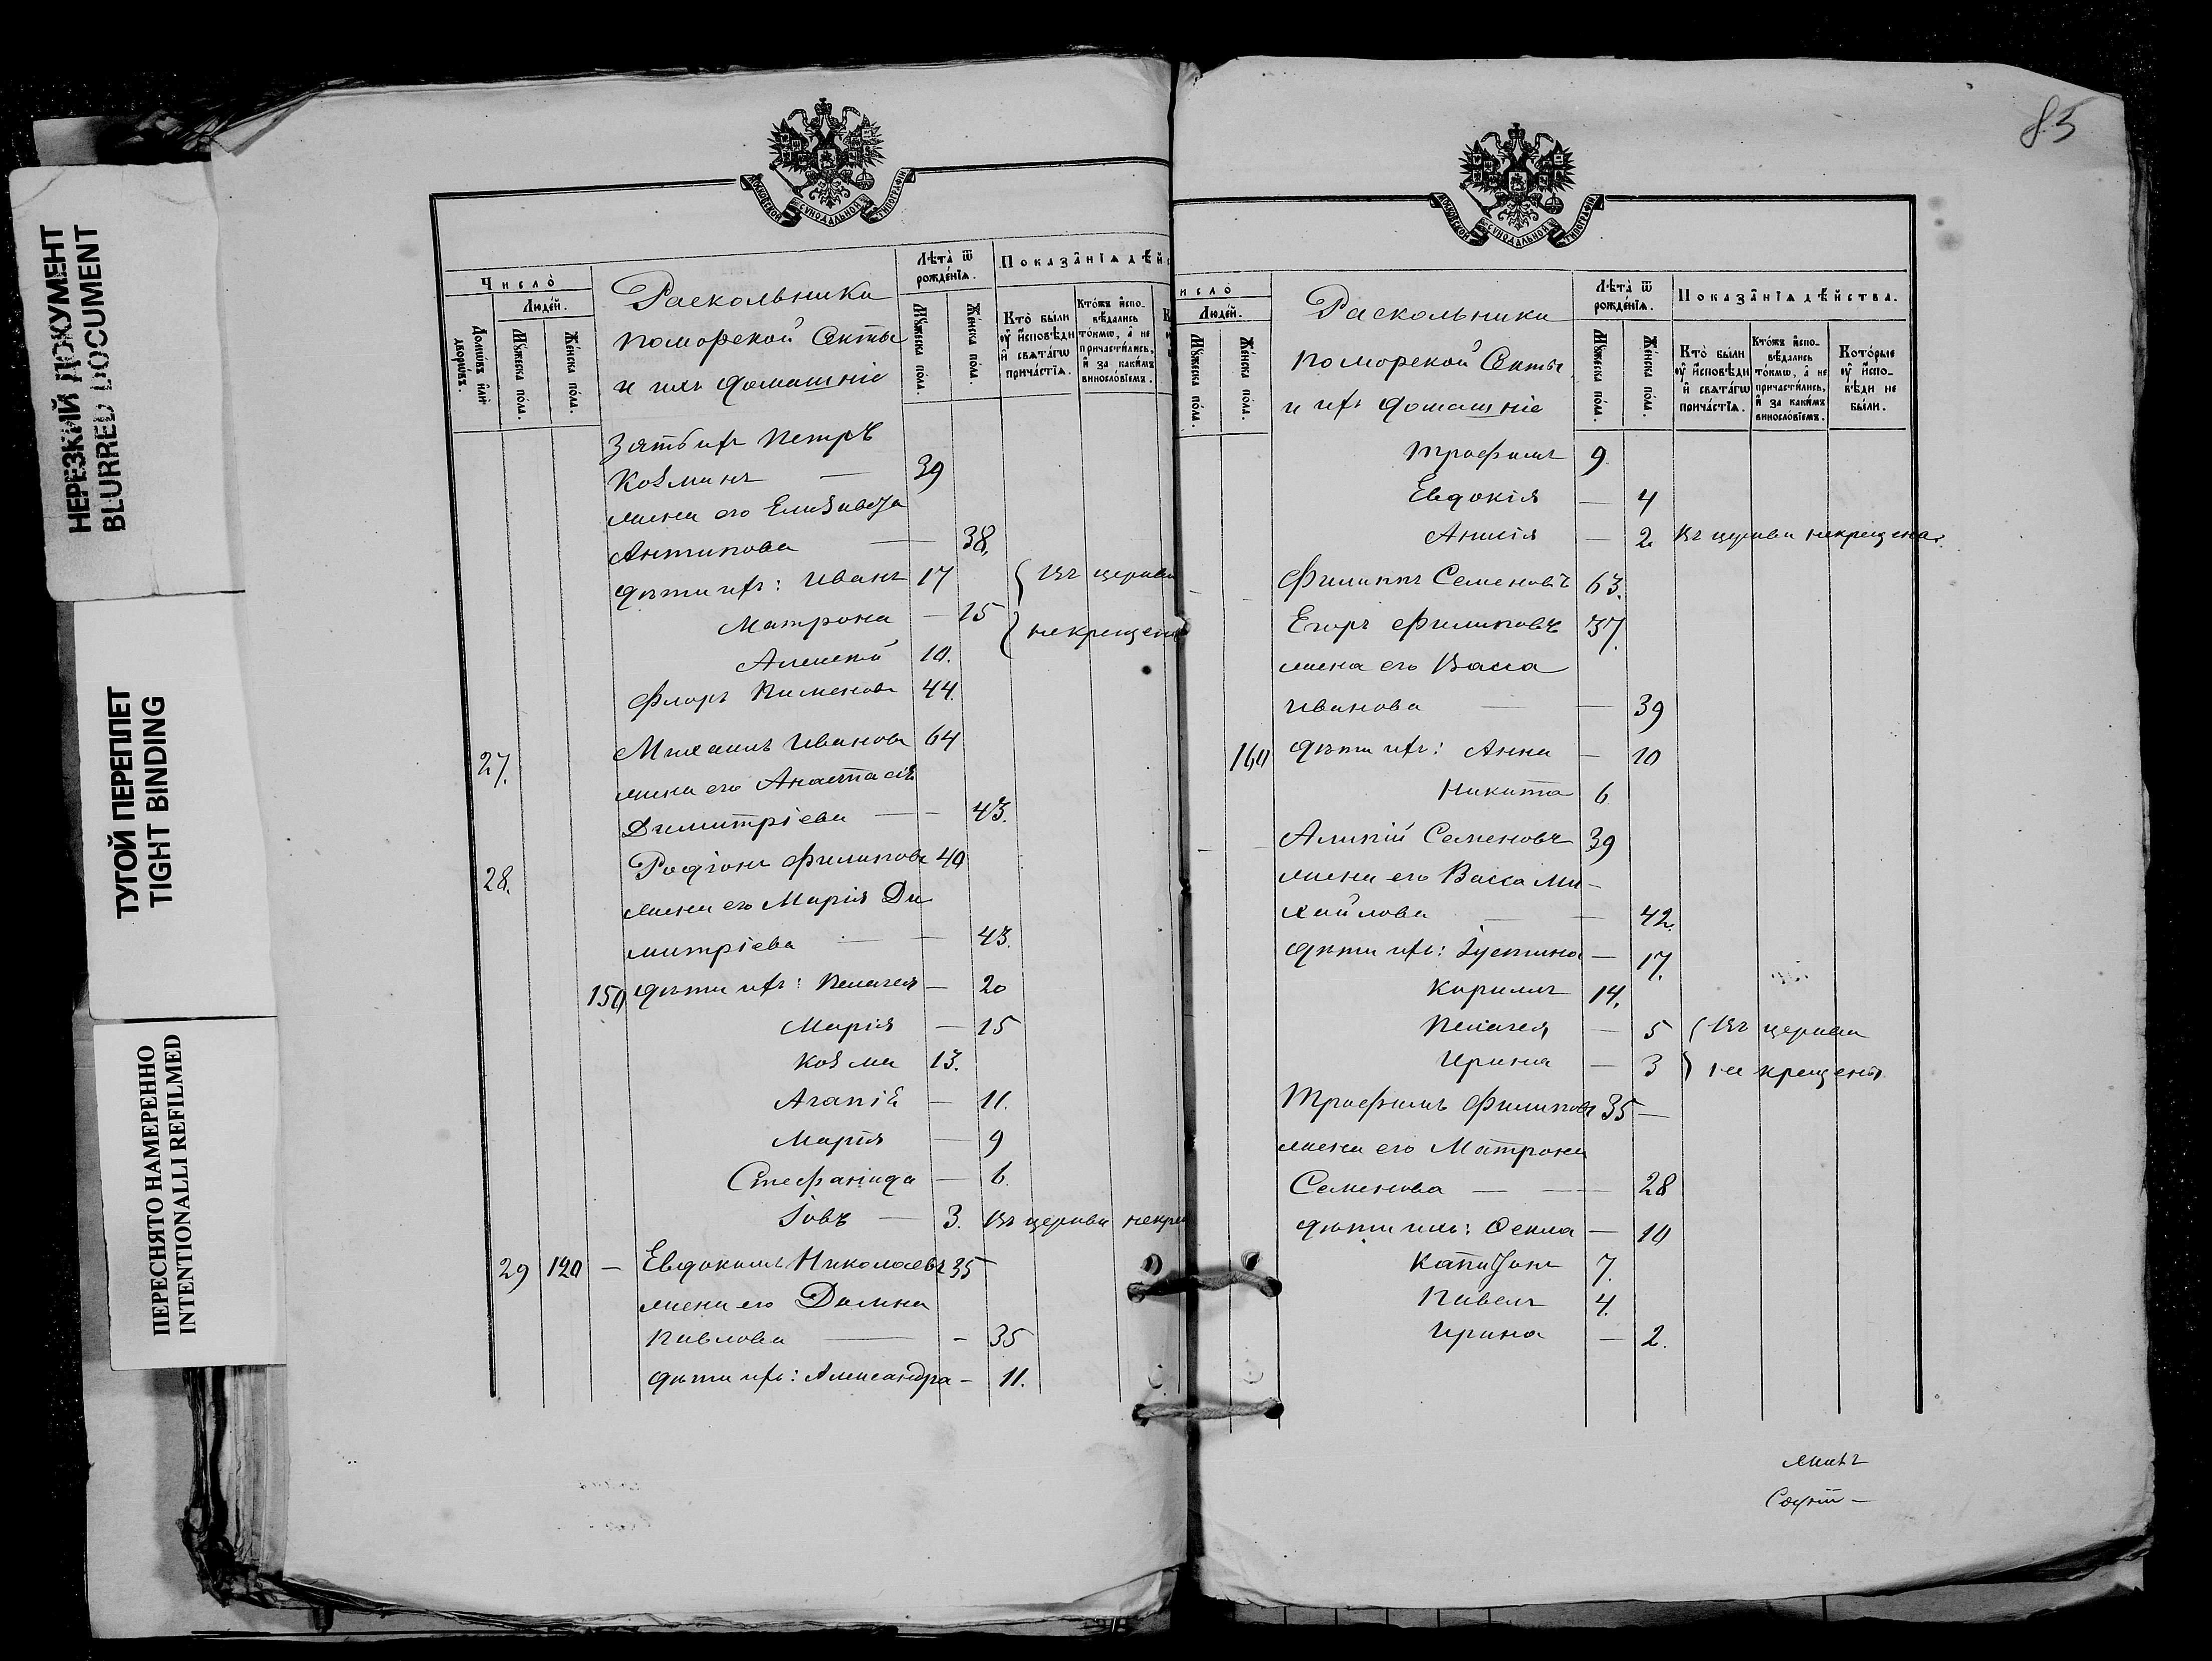 НЕРЕЗКИЙ ДОКУМЕНТ
BLURRED DOCUMENT
ТУГОЙ ПЕРЕПЛЕТ
TIGHT BINDING
ПЕРЕСНЯТО НАМЕРЕННО
INTENTIONALLI REFILMED
МОСКОВСКОЙ СѴНОДАЛЬНОЙ ТИПОГРАФІИ
Число̀
Люде́й.
Домѡ́въ и҆лѝ дворѡ́въ.
Мꙋ́жеска по́ла.
Же́нска по́ла.
Раскольники
поморской Секты
и ихъ домашніе
Лѣ́та ѿ рожде́нїѧ.
Мꙋ́жеска по́ла.
Же́нска по́ла.
Показа̑нїѧ дѣ́йс
Кто̀ бы́ли ᲂу҆ и҆сповѣ́ди и҆ свѧта́гѡ прича́стїѧ.
Кто́жъ и҆спо-вѣ́дались то́кмѡ, а҆ не причасти́лись, и҆ за каки́мъ виносло́вїемъ.
Зять ихъ Петръ
Козминъ — 39
жена его Елизавета
Антипова — 38.
дѣти ихъ: Иванъ 17 Въ церкви
Матрона — 15 некрещены
Алексѣй 10.
Флоръ Пименовъ 44.
27. Михаилъ Ивановъ 64
жена его Анастасія
Димитріева — 43.
28. Родіонъ Филиповъ 40
жена его Марія Ди
митріева — 43.
150 дѣти ихъ: Пелагея — 20
Марія — 15
Козма 13.
Агапія — 11.
Марія — 9
Стефанида — 6.
Іовъ — 3. Въ церкви некре
29 120 — Евдокимъ Николаевъ 35
жена его Домна
Павлова — 35
дѣти ихъ: Александра — 11.
85
МОСКОВСКОЙ СѴНОДАЛЬНОЙ ТИПОГРАФІИ
исло̀
Люде́й.
Мꙋ́жеска по́ла.
Же́нска по́ла.
Раскольники
поморской Секты
и ихъ домашніе
Лѣ́та ѿ рожде́нїѧ.
Мꙋ́жеска по́ла.
Же́нска по́ла.
Показа̑нїѧ дѣ́йства.
Кто̀ бы́ли ᲂу҆ и҆сповѣ́ди и҆ свѧта́гѡ прича́стїѧ.
Кто́жъ и҆спо-вѣ́дались то́кмѡ, а҆ не причасти́лись, и҆ за каки́мъ виносло́вїемъ.
Кото́рые ᲂу҆ и҆спо-вѣ́ди не бы́ли.
Трофимъ 9
Евдокія — 4
Анисія — 2 Въ церкви некрещена.
Филиппъ Семеновъ 63.
Егоръ Филиповъ 37.
жена его Васса
Иванова — 39
160 дѣти ихъ: Анна — 10
Никита 6
Алипій Семеновъ 39
жена его Васса Ми-
хайлова — 42.
дѣти ихъ: Іустина — 17.
Кирилъ 14.
Пелагея — 5 Въ церкви
Ирина — 3 не крещены
Трофимъ Филиповъ 35 —
жена его Матрона
Семенова — 28
дѣти ихъ: Ѳекла — 10
Капитонъ 7.
Павелъ 4.
Ирина — 2.